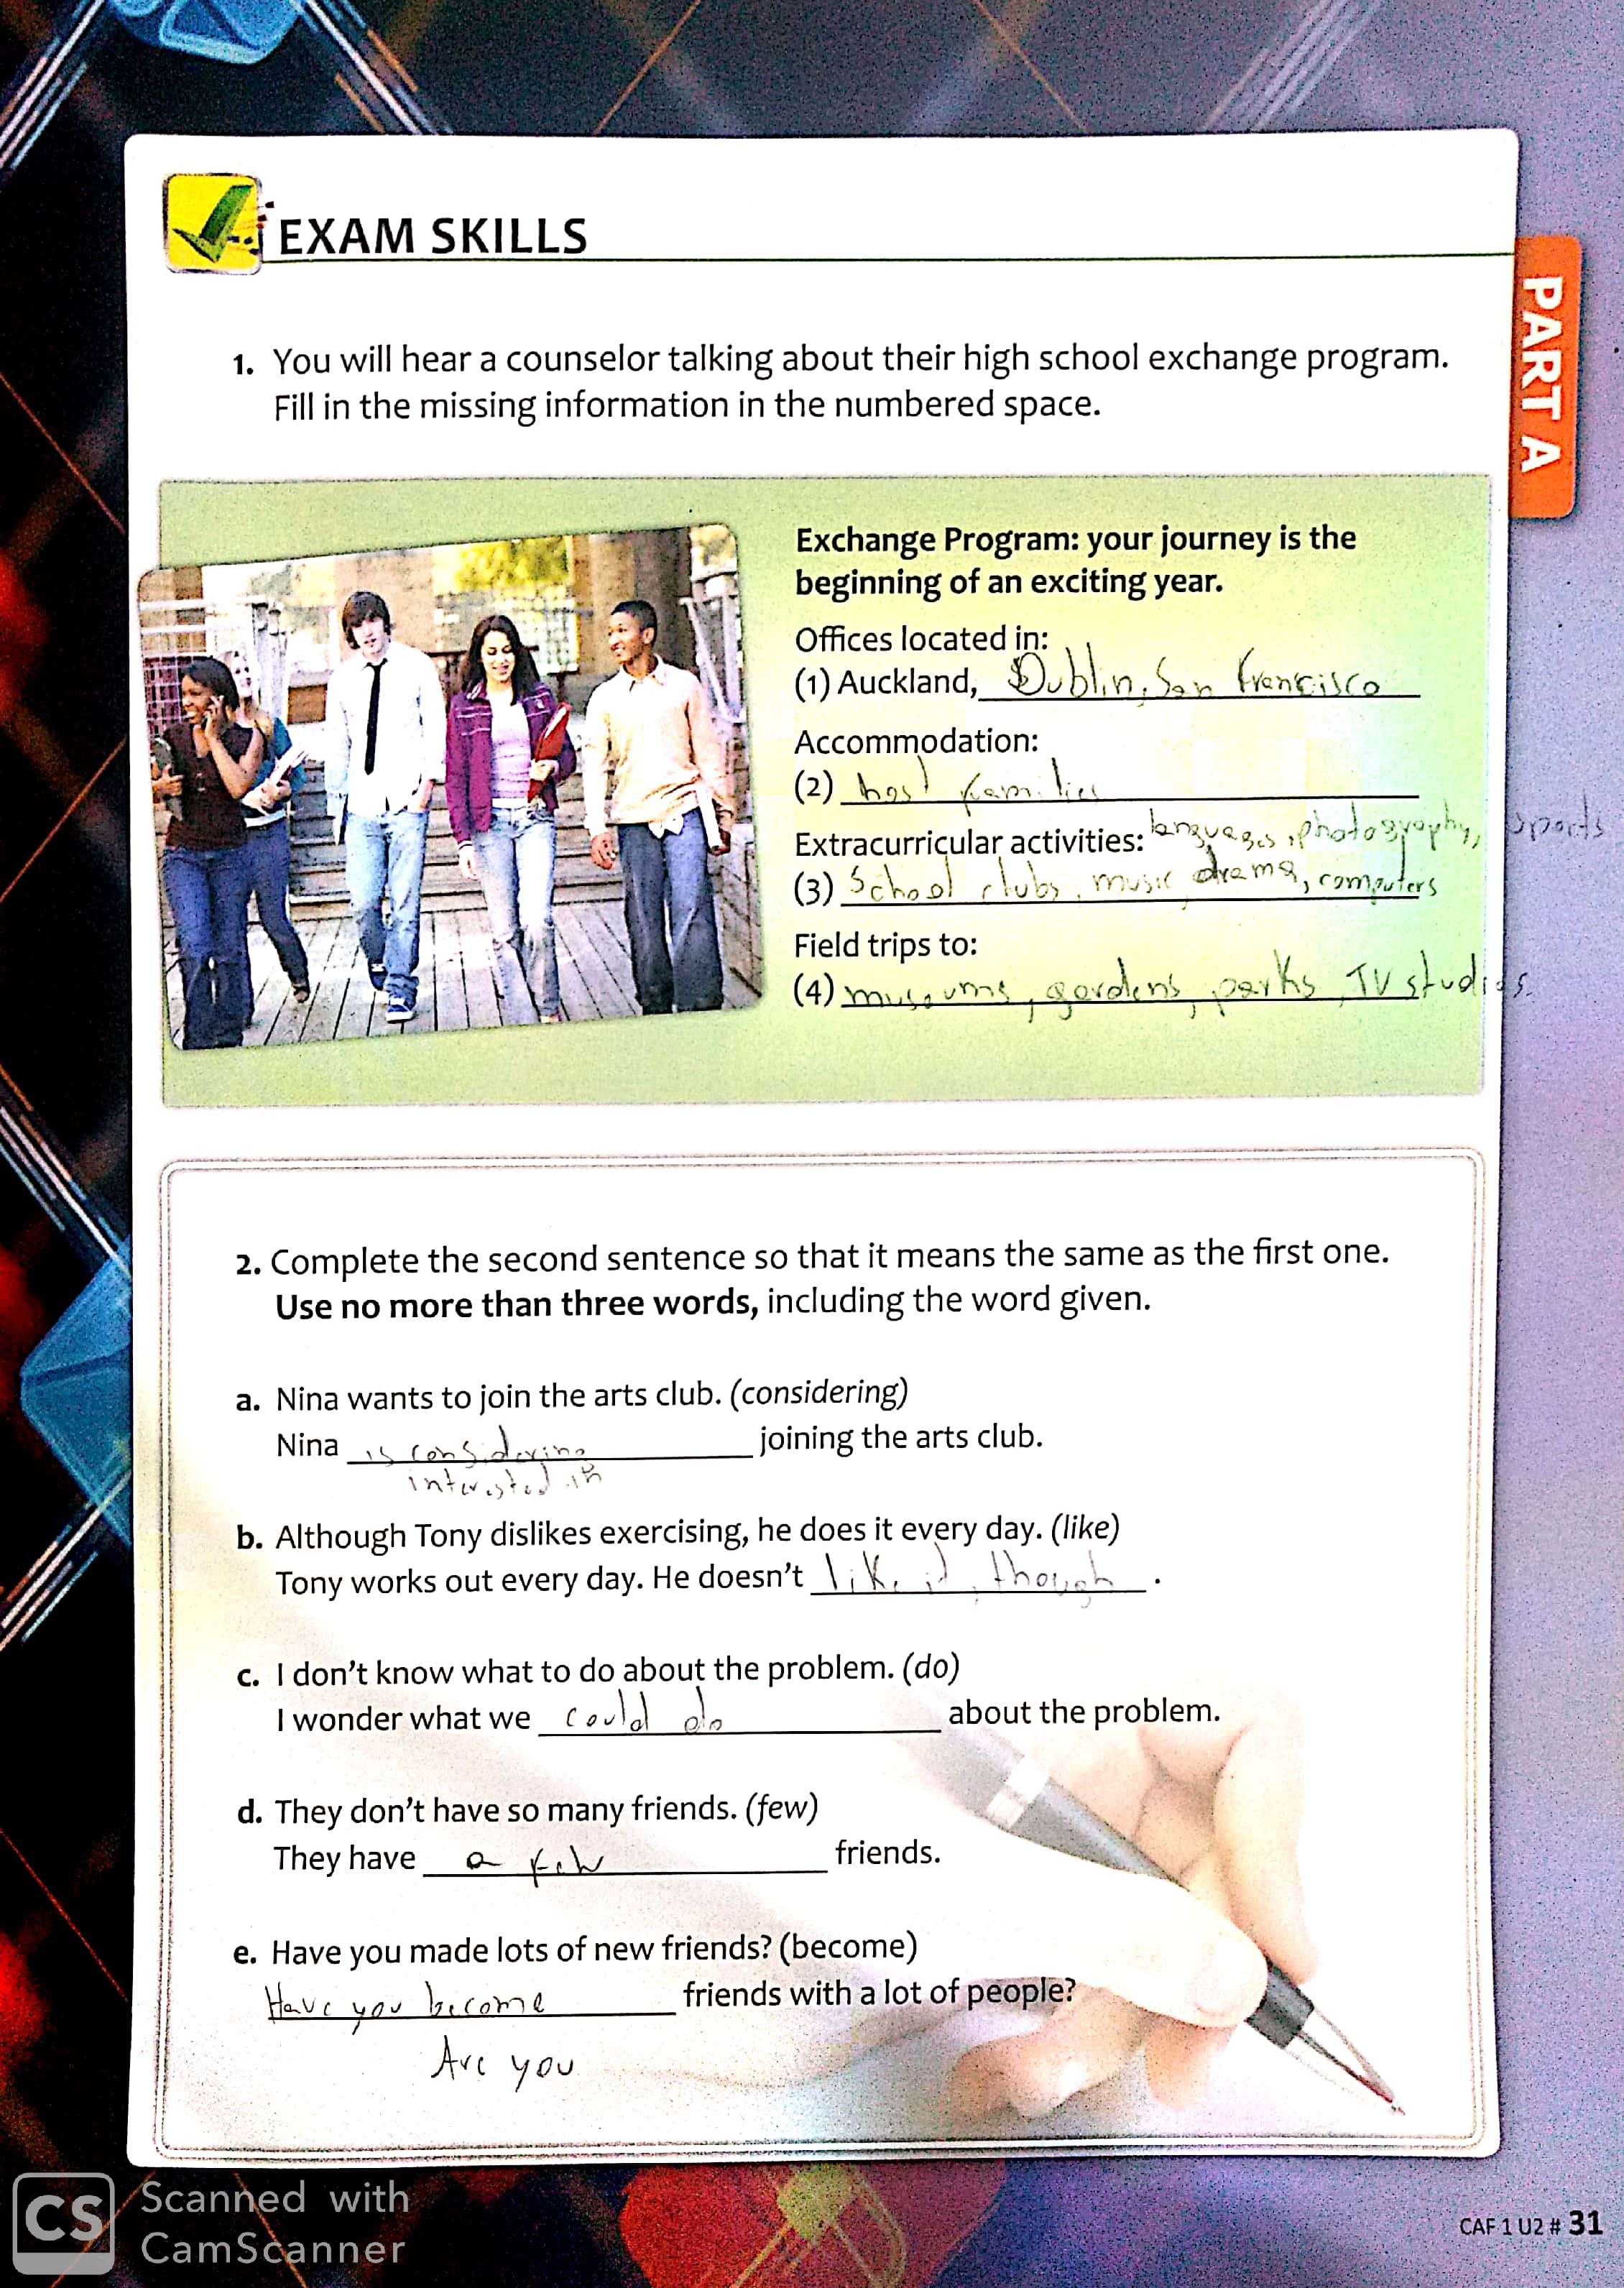 EXAM SKILLS
PART A
1. You will hear a counselor talking about their high school exchange program.
Fill in the missing information in the numbered space.
Exchange Program: your journey is the
beginning of an exciting year.
Offices located in:
(1) Auckland, Dublin, San Francisco
Accommodation:
(2) host families
Extracurricular activities: languages, photography, sports
(3) School clubs, music, drama, computers
Field trips to:
(4) museums, gardens, parks, TV studios.
2. Complete the second sentence so that it means the same as the first one.
Use no more than three words, including the word given.
a. Nina wants to join the arts club. (considering)
Nina is considering joining the arts club.
interested in
b. Although Tony dislikes exercising, he does it every day. (like)
Tony works out every day. He doesn't like it, though.
c. I don't know what to do about the problem. (do)
I wonder what we could do about the problem.
d. They don't have so many friends. (few)
They have a few friends.
e. Have you made lots of new friends? (become)
Have you become friends with a lot of people?
Are you
CS Scanned with
CamScanner
CAF 1 U2 # 31